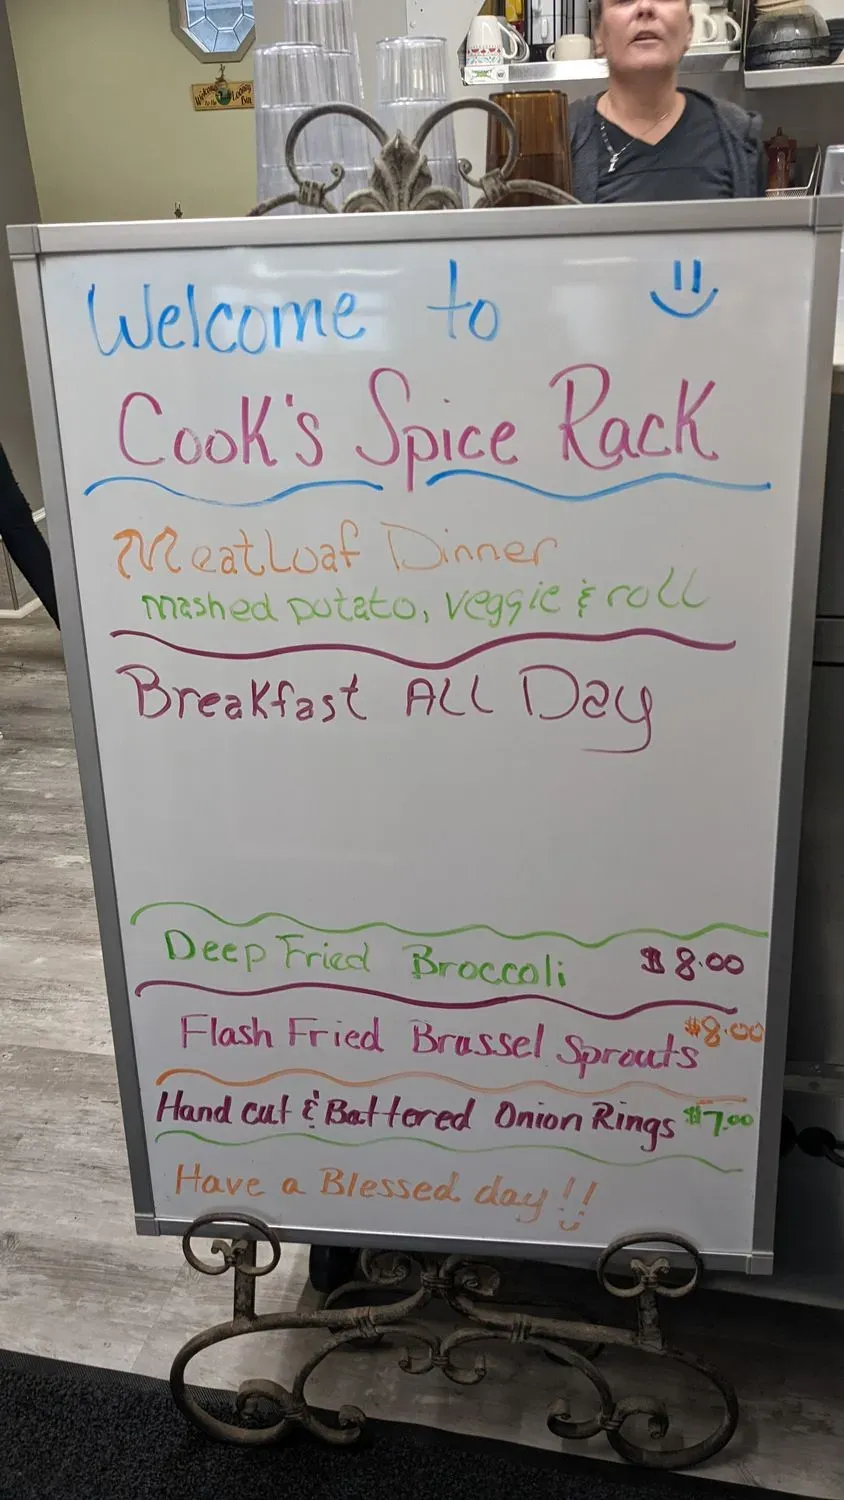 Welcome to
Cook's Spice Rack
MeatLoaf Dinner
mashed potato, veggie & roll
Breakfast ALL Day
Deep Fried Broccoli $8.00
Flash Fried Brussel Sprouts $8.00
Hand cut & Battered Onion Rings $7.00
Have a Blessed day!!